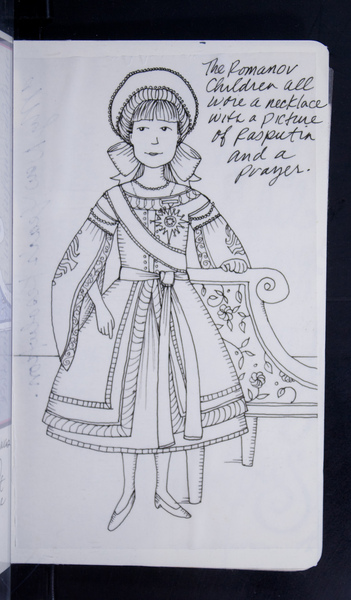 The Romanov
Children all
wore a necklace
with a picture
of Rasputin
and a
prayer.